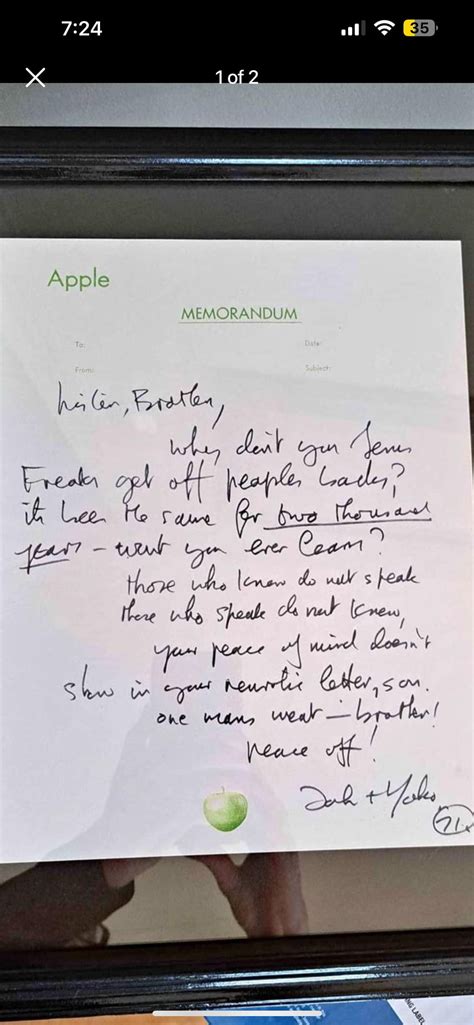 7:24
35
1 of 2
Apple
MEMORANDUM
To:
Date:
From:
Subject:
Listen, Brother,
why don't you Jesus
Freaks get off peoples backs?
its been the same for two thousand
years - wont you ever learn?
those who know do not speak
those who speak do not know,
your peace of mind doesn't
show in your neurotic letter, son.
one mans meat - brother!
peace off!
John + Yoko
71
NG LABEL